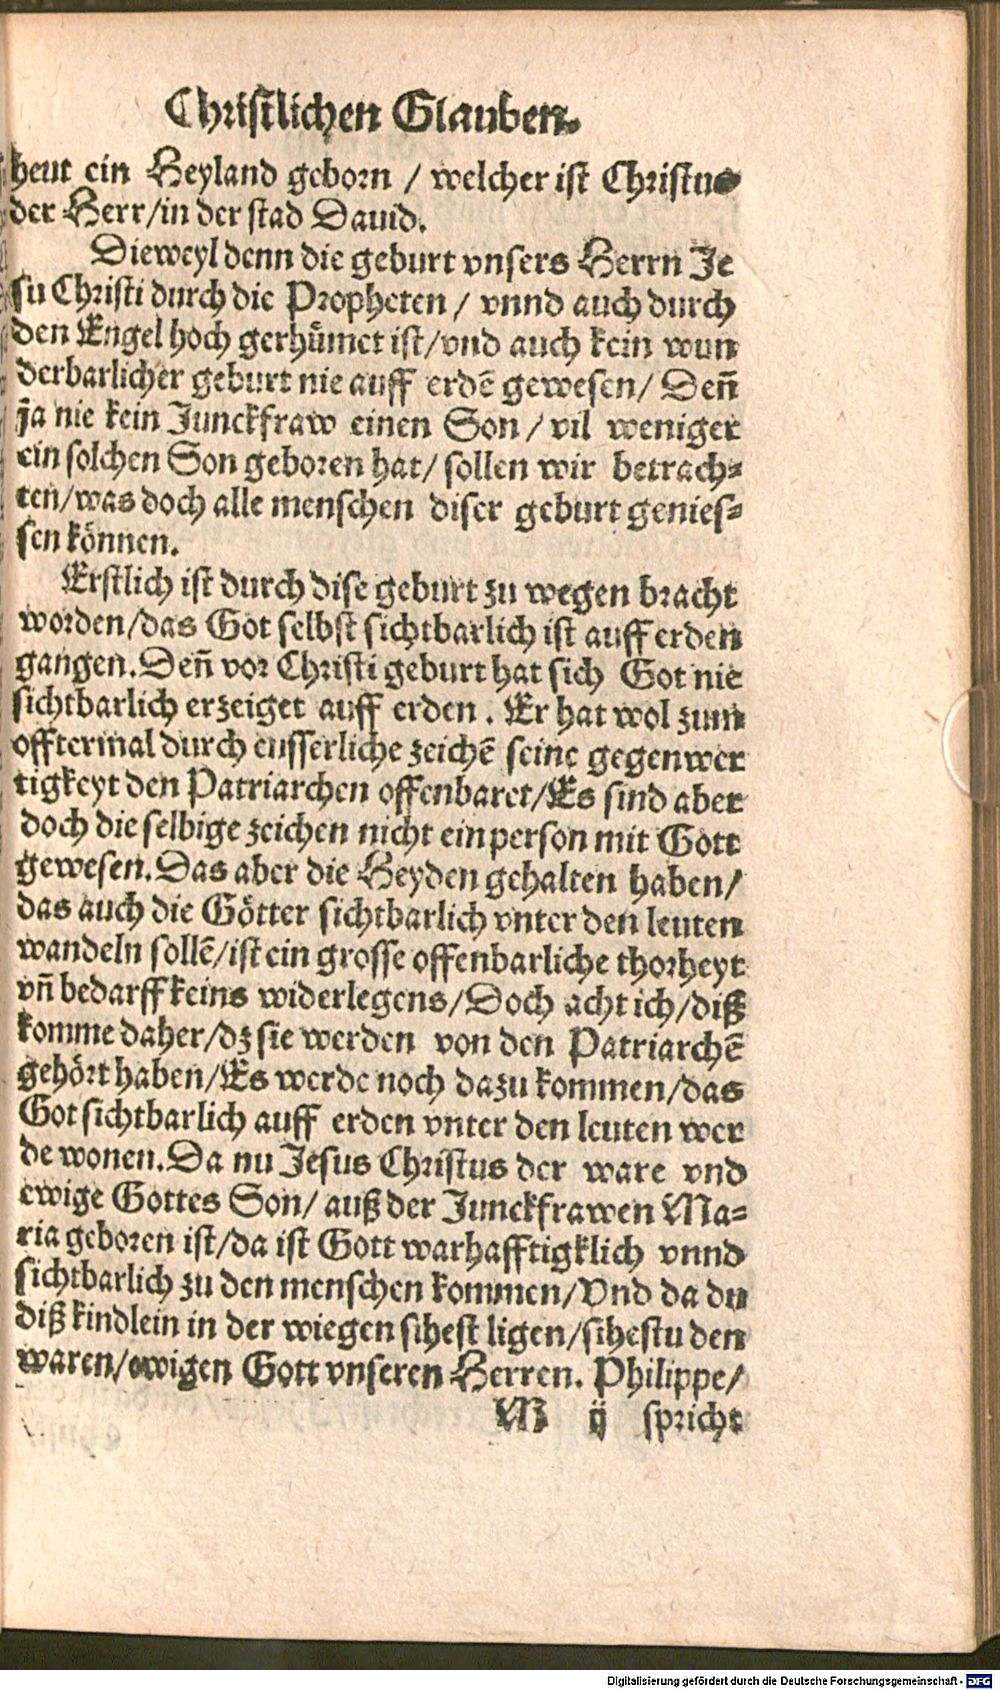 Christlichen Glauben.
heut ein Heyland geborn / welcher ist Christus
der Herr/in der stad Dauid.
Dieweyl denn die geburt vnsers Herrn Je
su Christi durch die Propheten / vnnd auch durch
den Engel hoch gerhuͤmet ist/vnd auch kein wun
derbarlicher geburt nie auff erdē gewesen/ Deñ
ja nie kein Junckfraw einen Son / vil weniger
ein solchen Son geboren hat/ sollen wir betrach⸗
ten/was doch alle menschen diser geburt genies⸗
sen koͤnnen.
Erstlich ist durch dise geburt zu wegen bracht
worden/das Got selbst sichtbarlich ist auff erden
gangen. Deñ vor Christi geburt hat sich Got nie
sichtbarlich erzeiget auff erden . Er hat wol zum
offtermal durch eusserliche zeichē seine gegenwer
tigkeyt den Patriarchen offenbaret/Es sind aber
doch die selbige zeichen nicht ein person mit Gott
gewesen. Das aber die Heyden gehalten haben/
das auch die Goͤtter sichtbarlich vnter den leuten
wandeln sollē/ist ein grosse offenbarliche thorheyt
vñ bedarff keins widerlegens/Doch acht ich/diß
komme daher/dz sie werden von den Patriarchē
gehoͤrt haben/Es werde noch dazu kommen/das
Got sichtbarlich auff erden vnter den leuten wer
de wonen. Da nu Jesus Christus der ware vnd
ewige Gottes Son/ auß der Junckfrawen Ma⸗
ria geboren ist/da ist Gott warhafftigklich vnnd
sichtbarlich zu den menschen kommen/Vnd da du
diß kindlein in der wiegen sihest ligen/sihestu den
waren/ewigen Gott vnseren Herren. Philippe/
M ij spricht
Digitalisierung gefördert durch die Deutsche Forschungsgemeinschaft - DFG